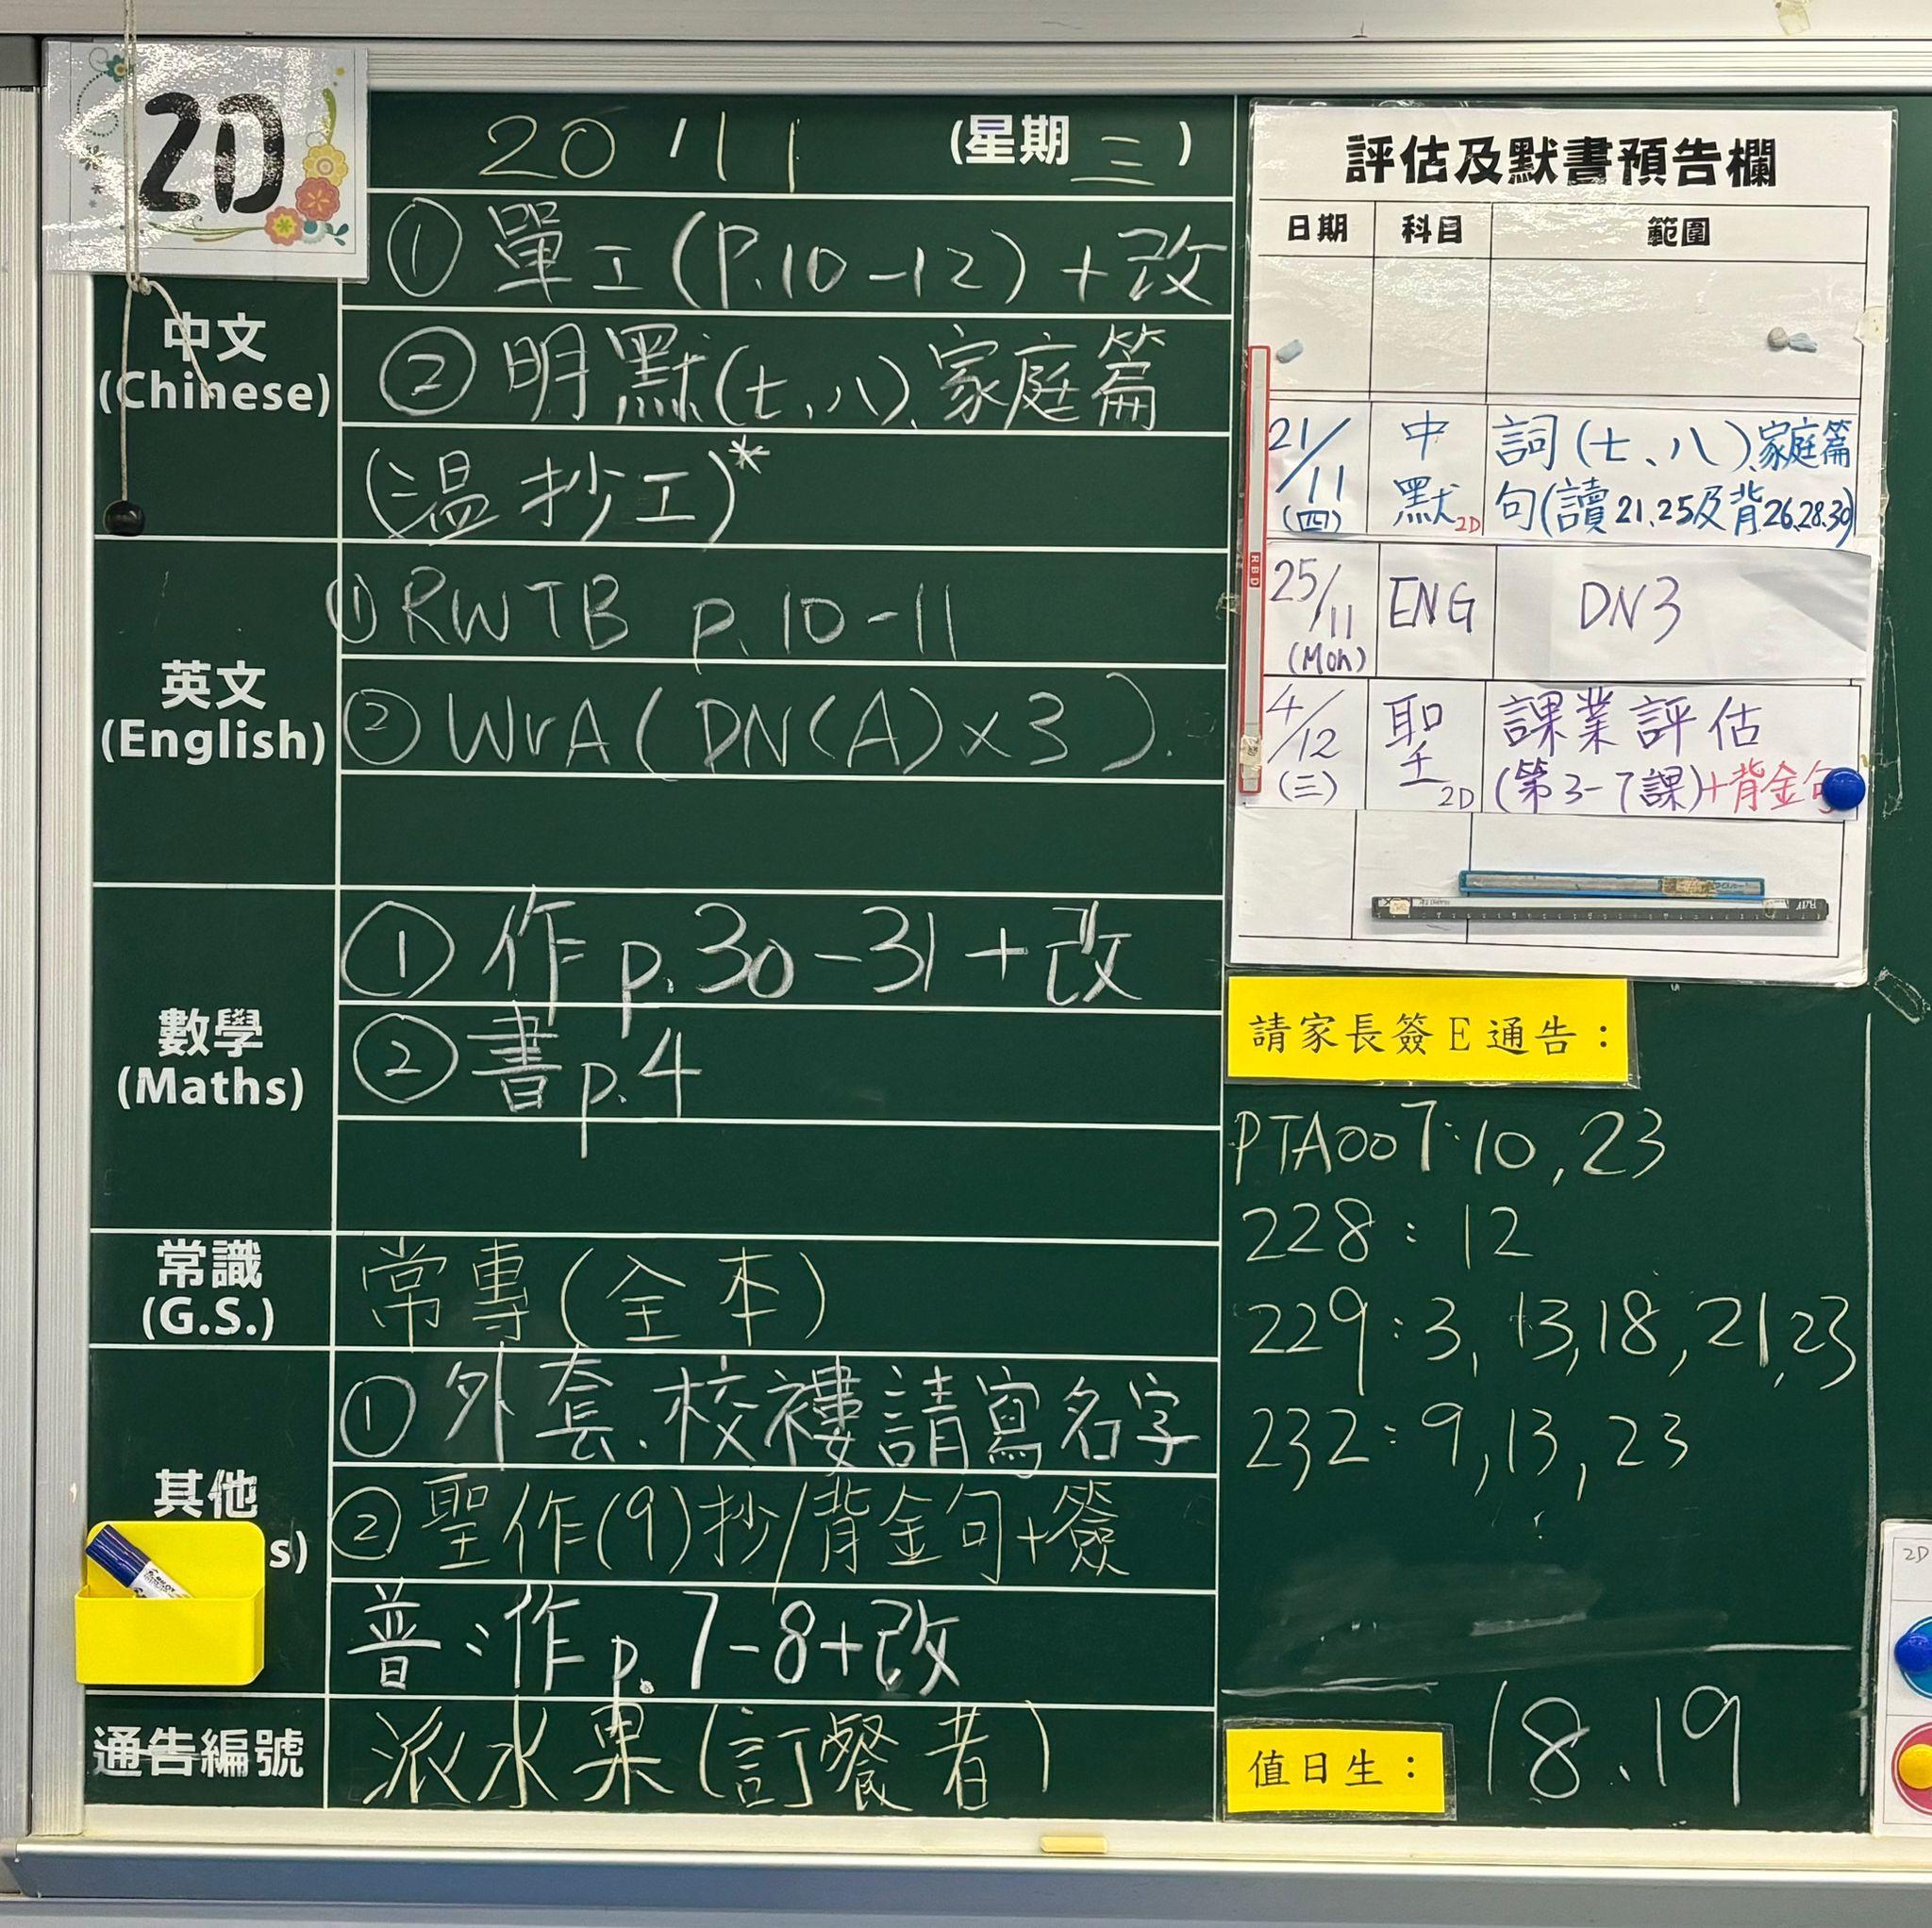 2D
20 / 11 (星期 三 )
中文
(Chinese)
① 單工 (P.10-12) + 改
② 明默(七、八)、家庭篇
(温抄工)*
英文
(English)
① RWTB p.10-11
② WrA ( DN(A) x 3 ).
數學
(Maths)
① 作 p.30-31 + 改
② 書 p.4
常識
(G.S.)
常專(全本)
其他
s)
① 外套、校褸請寫名字
② 聖作(9)抄/背金句+簽
普:作 p.7-8+改
通告編號
派水果(訂餐者)
評估及默書預告欄
日期 科目 範圍
21/11 (四) 中默 2D 詞(七、八)、家庭篇
句(讀21.25及背26.28.30)
25/11 (Mon) ENG DN3
4/12 (三) 聖 2D 課業評估
(第3-7課)+背金句
RBD
請家長簽E通告:
PTA007:10,23
228: 12
229:3,13,18,21,23
232:9,13,23
值日生: 18、19
2D